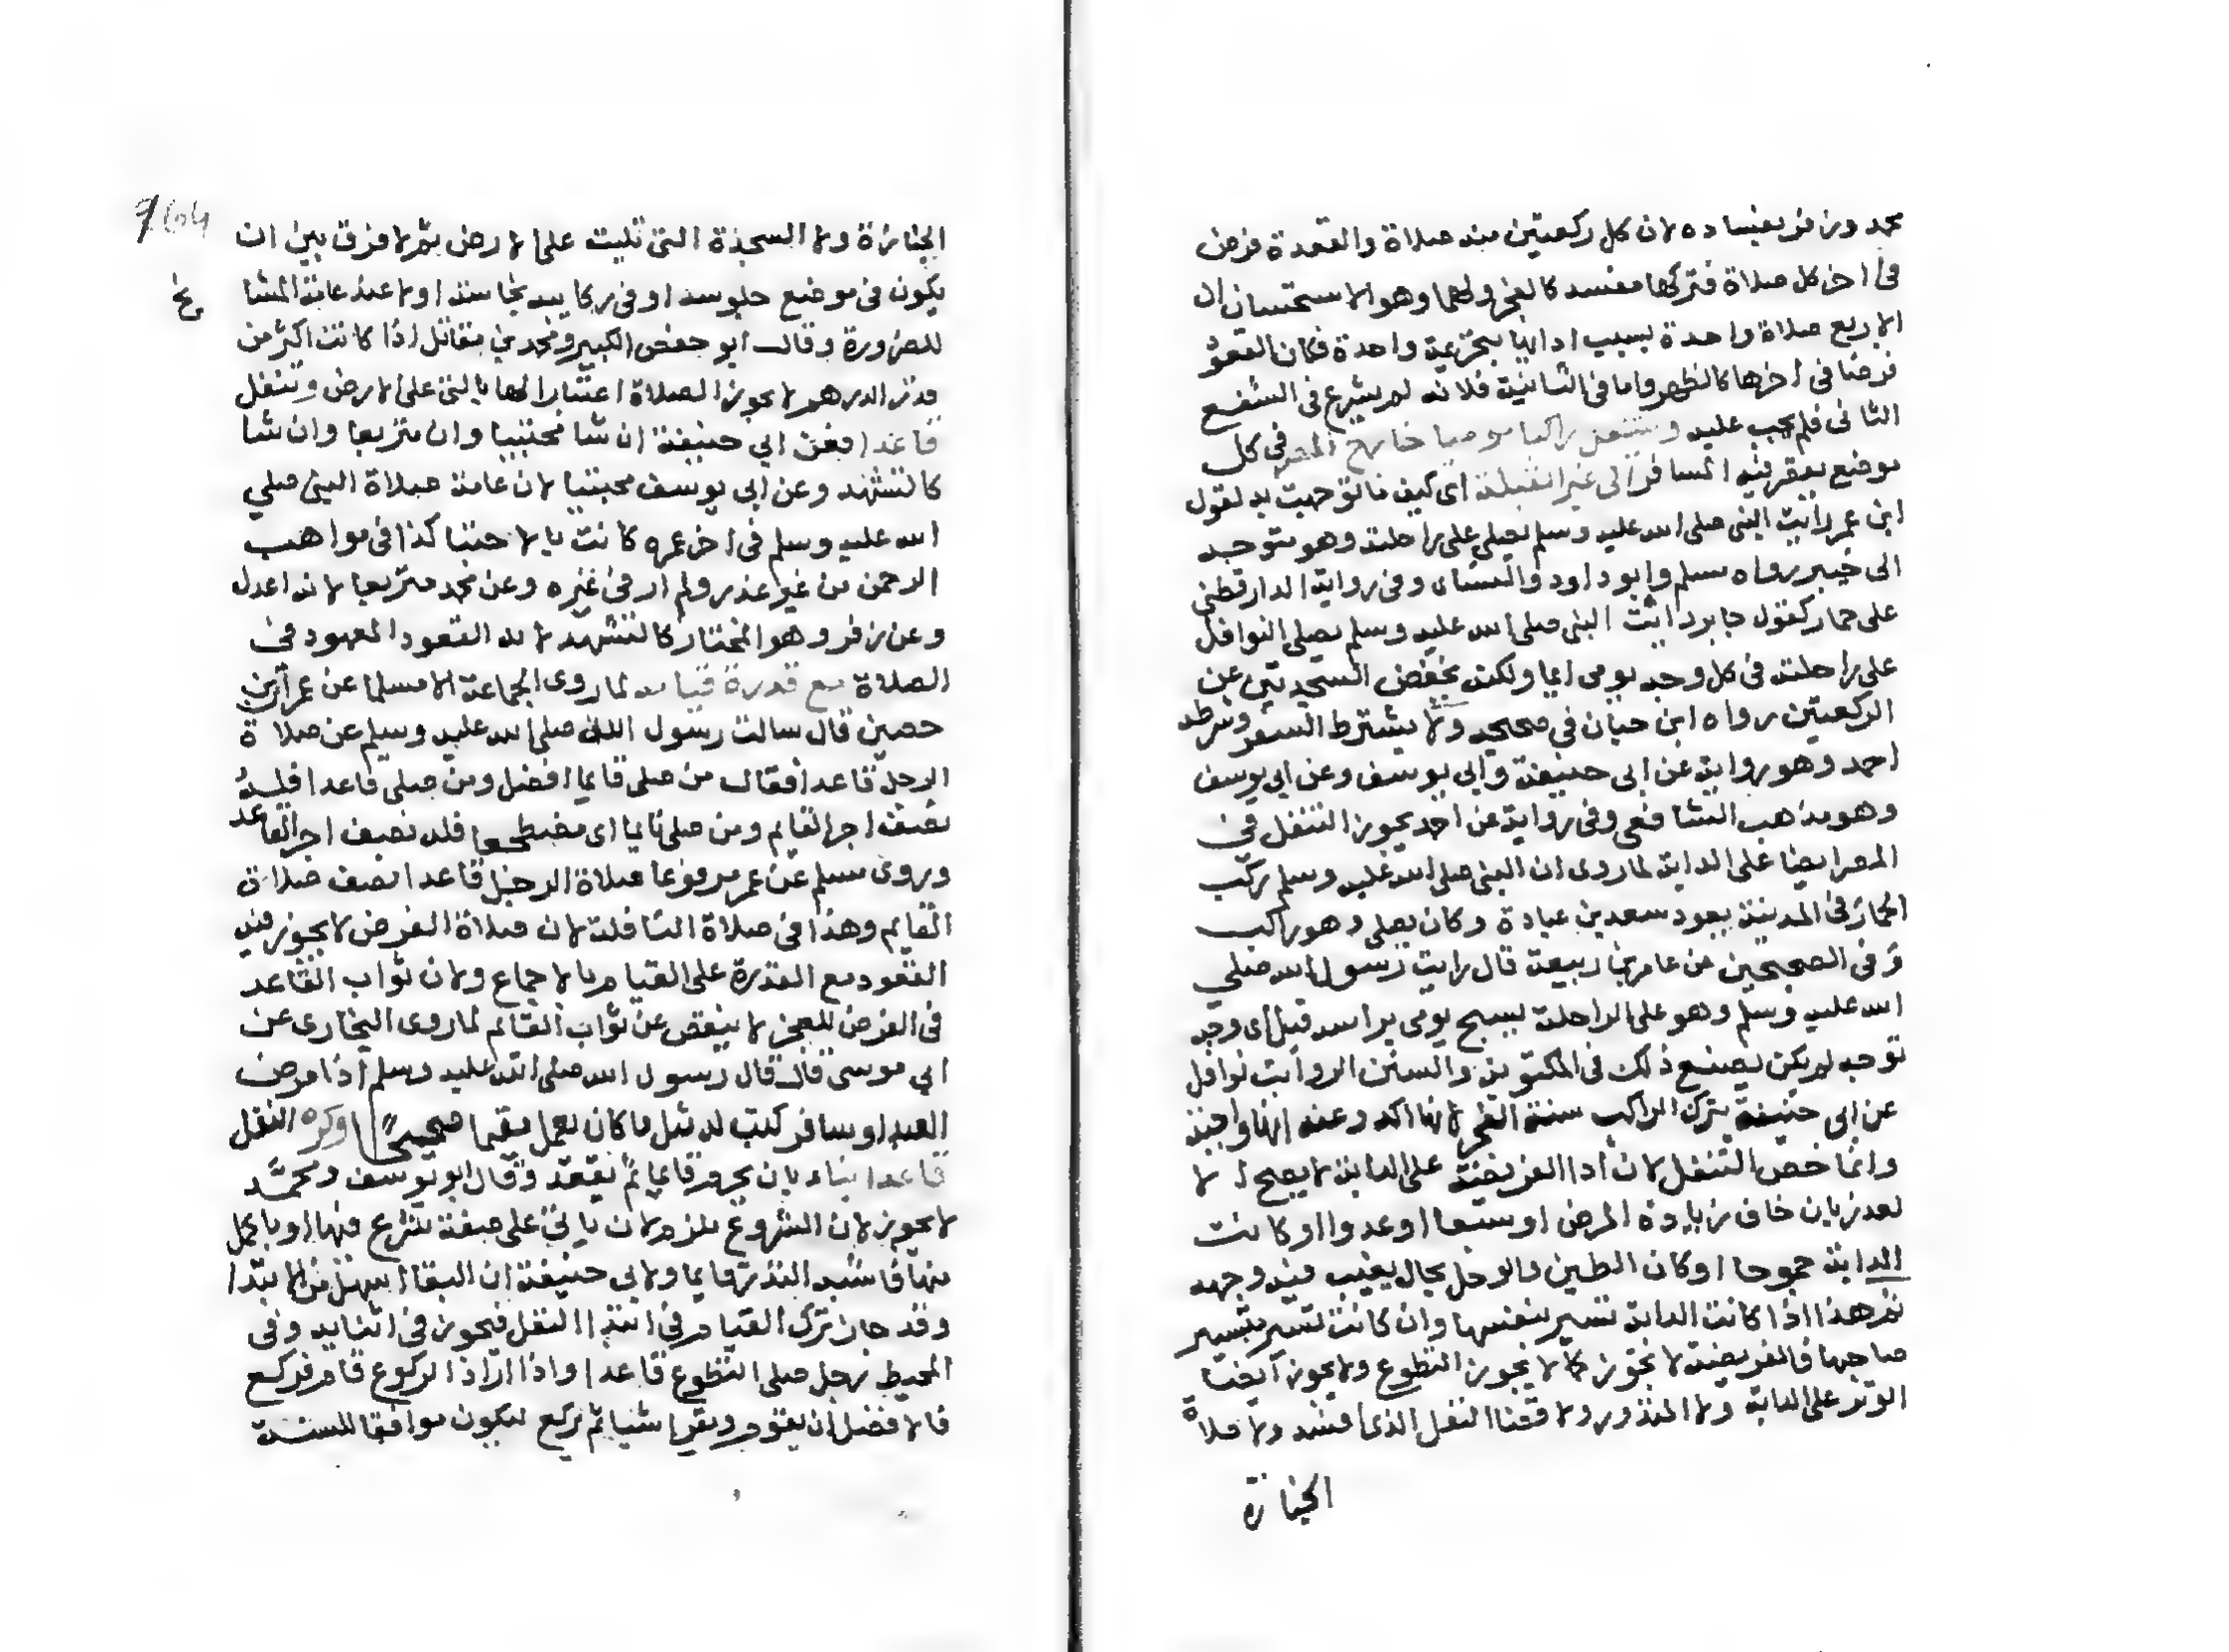 محمد وزفر بفساده لان كل ركعتين منه صلاة والقعدة فرض
فى اخر كل صلاة فتركها مفسد كالفجر ولهما وهو الاستحسان ان
الاربع صلاة واحدة بسبب ادائها بتحريمة واحدة فكان القعود
فرضا فى اخرها كالظهر واما فى الثانية فلانه لم يشرع فى الشفع
الثانى فلم يجب عليه وتنفل راكبا موميا خارج المصر فى كل
موضع يقصر فيه المسافر الى غير القبلة اى كيف ما توجهت به لقول
ابن عمر رايت النبى صلى الله عليه وسلم يصلى على راحلته وهو متوجه
الى خيبر رواه مسلم وابو داود والنسائ وفى رواية الدارقطنى
على حمار كقول جابر رايت النبى صلى الله عليه وسلم يصلى النوافل
على راحلته فى كل وجه يومى ايما ولكنه يخفض السجدتين عن
الركعتين رواه ابن حبان فى صحيحه ولا يشترط السفر وشرطه
احمد وهو رواية عن ابى حنيفة وابى يوسف وعن ابى يوسف
وهو مذهب الشافعى وفى رواية عن احمد يجوز التنفل فى
المصر ايضا على الدابة لما روى ان النبى صلى الله عليه وسلم ركب
الحمار فى المدينة يعود سعد بن عبادة وكان يصلى وهو راكب
وفى الصحيحين عن عامر بن ربيعة قال رايت رسول الله صلي
الله عليه وسلم وهو على الراحلة يسبح يومى براسه قبل اى وجه
توجه لم يكن يصنع ذلك فى المكتوبة والسنن الرواتب نوافل
عن ابى حنيفة يترك الراكب سنة الفجر لانها اكد وعنه انها واجبة
وانما خص التنفل لان ادا الفريضة على الدابة لا يصح الا
لعذر بان خاف زيادة المرض او سبعا او عدوا او كانت
الدابة جموحا او كان الطين والوحل بحال يغيب فيه وجهه
ثم هذا اذا كانت الدابة تسير بنفسها وان كانت تسير بتسيير
صاحبها فالفريضة لا تجوز كما لا يجوز التطوع ولا يجوز ايضا
الوتر على الدابة ولا المنذور ولا قضا النفل الذى افسد ولا صلاة
الجنازة
764
الجنازة ولا السجدة التى تليت على الارض ثم لا فرق بين ان
يكون فى موضع جلوسه او فى ركابيه نجاسة او لا عند عامة المشا
يخ
للضرورة وقال ابو حفص الكبير ومحمد بن مقاتل اذا كانت اكثر من
قدر الدرهم لا يجوز الصلاة اعتبارا لها بالتى على الارض وتنفل
قاعدا فعن ابي حنيفة ان شا محتبيا وان متربعا وان شا
كالتشهد وعن ابى يوسف محتبيا لان عامة صلاة النبى صلي
الله عليه وسلم فى اخر عمره كانت بالاحتبا كذا فى مواهب
الرحمن من غير عذر ولم ار فى غيره وعن محمد متربعا لانه اعدل
وعن زفر وهو المختار كالتشهد لانه القعود المعهود فى
الصلاة مع قدرة قيامه لما روى الجماعة الا مسلما عن عمران بن
حصين قال سالت رسول الله صلى الله عليه وسلم عن صلاة
الرجل قاعدا فقال من صلى قايما افضل ومن صلى قاعدا فله
نصف اجر القايم ومن صلى نايما اى مضطجعا فله نصف اجر القاعد
وروى مسلم عن عمر مرفوعا صلاة الرجل قاعدا نصف صلاة
القايم وهذا فى صلاة النافلة لان صلاة الفرض لا يجوز فيه
القعود مع القدرة على القيام بالاجماع ولان ثواب القاعد
فى الفرض للعجز لا ينقص عن ثواب القائم لما روى البخارى عن
ابي موسى قال قال رسول الله صلى الله عليه وسلم اذا مرض
العبد او سافر كتب له مثل ما كان يعمل مقيما صحيحا وكره النفل
قاعدا بناء بان يحرم قايما ثم يقعد وقال ابو يوسف ومحمد
لا يجوز لان الشروع ملزم لان ياتى على صفة شرع فيها او باكمل
منها فاشبه النذر قايما ولابى حنيفة ان البقا اسهل من الابتدا
وقد جاز ترك القيام فى ابتدا النفل فيجوز فى اثنايه وفى
المحيط رجل صلى التطوع قاعدا واذا اراد الركوع قام فركع
فالافضل ان يقوم ويقرا شيا ثم يركع ليكون موافقا للسنة